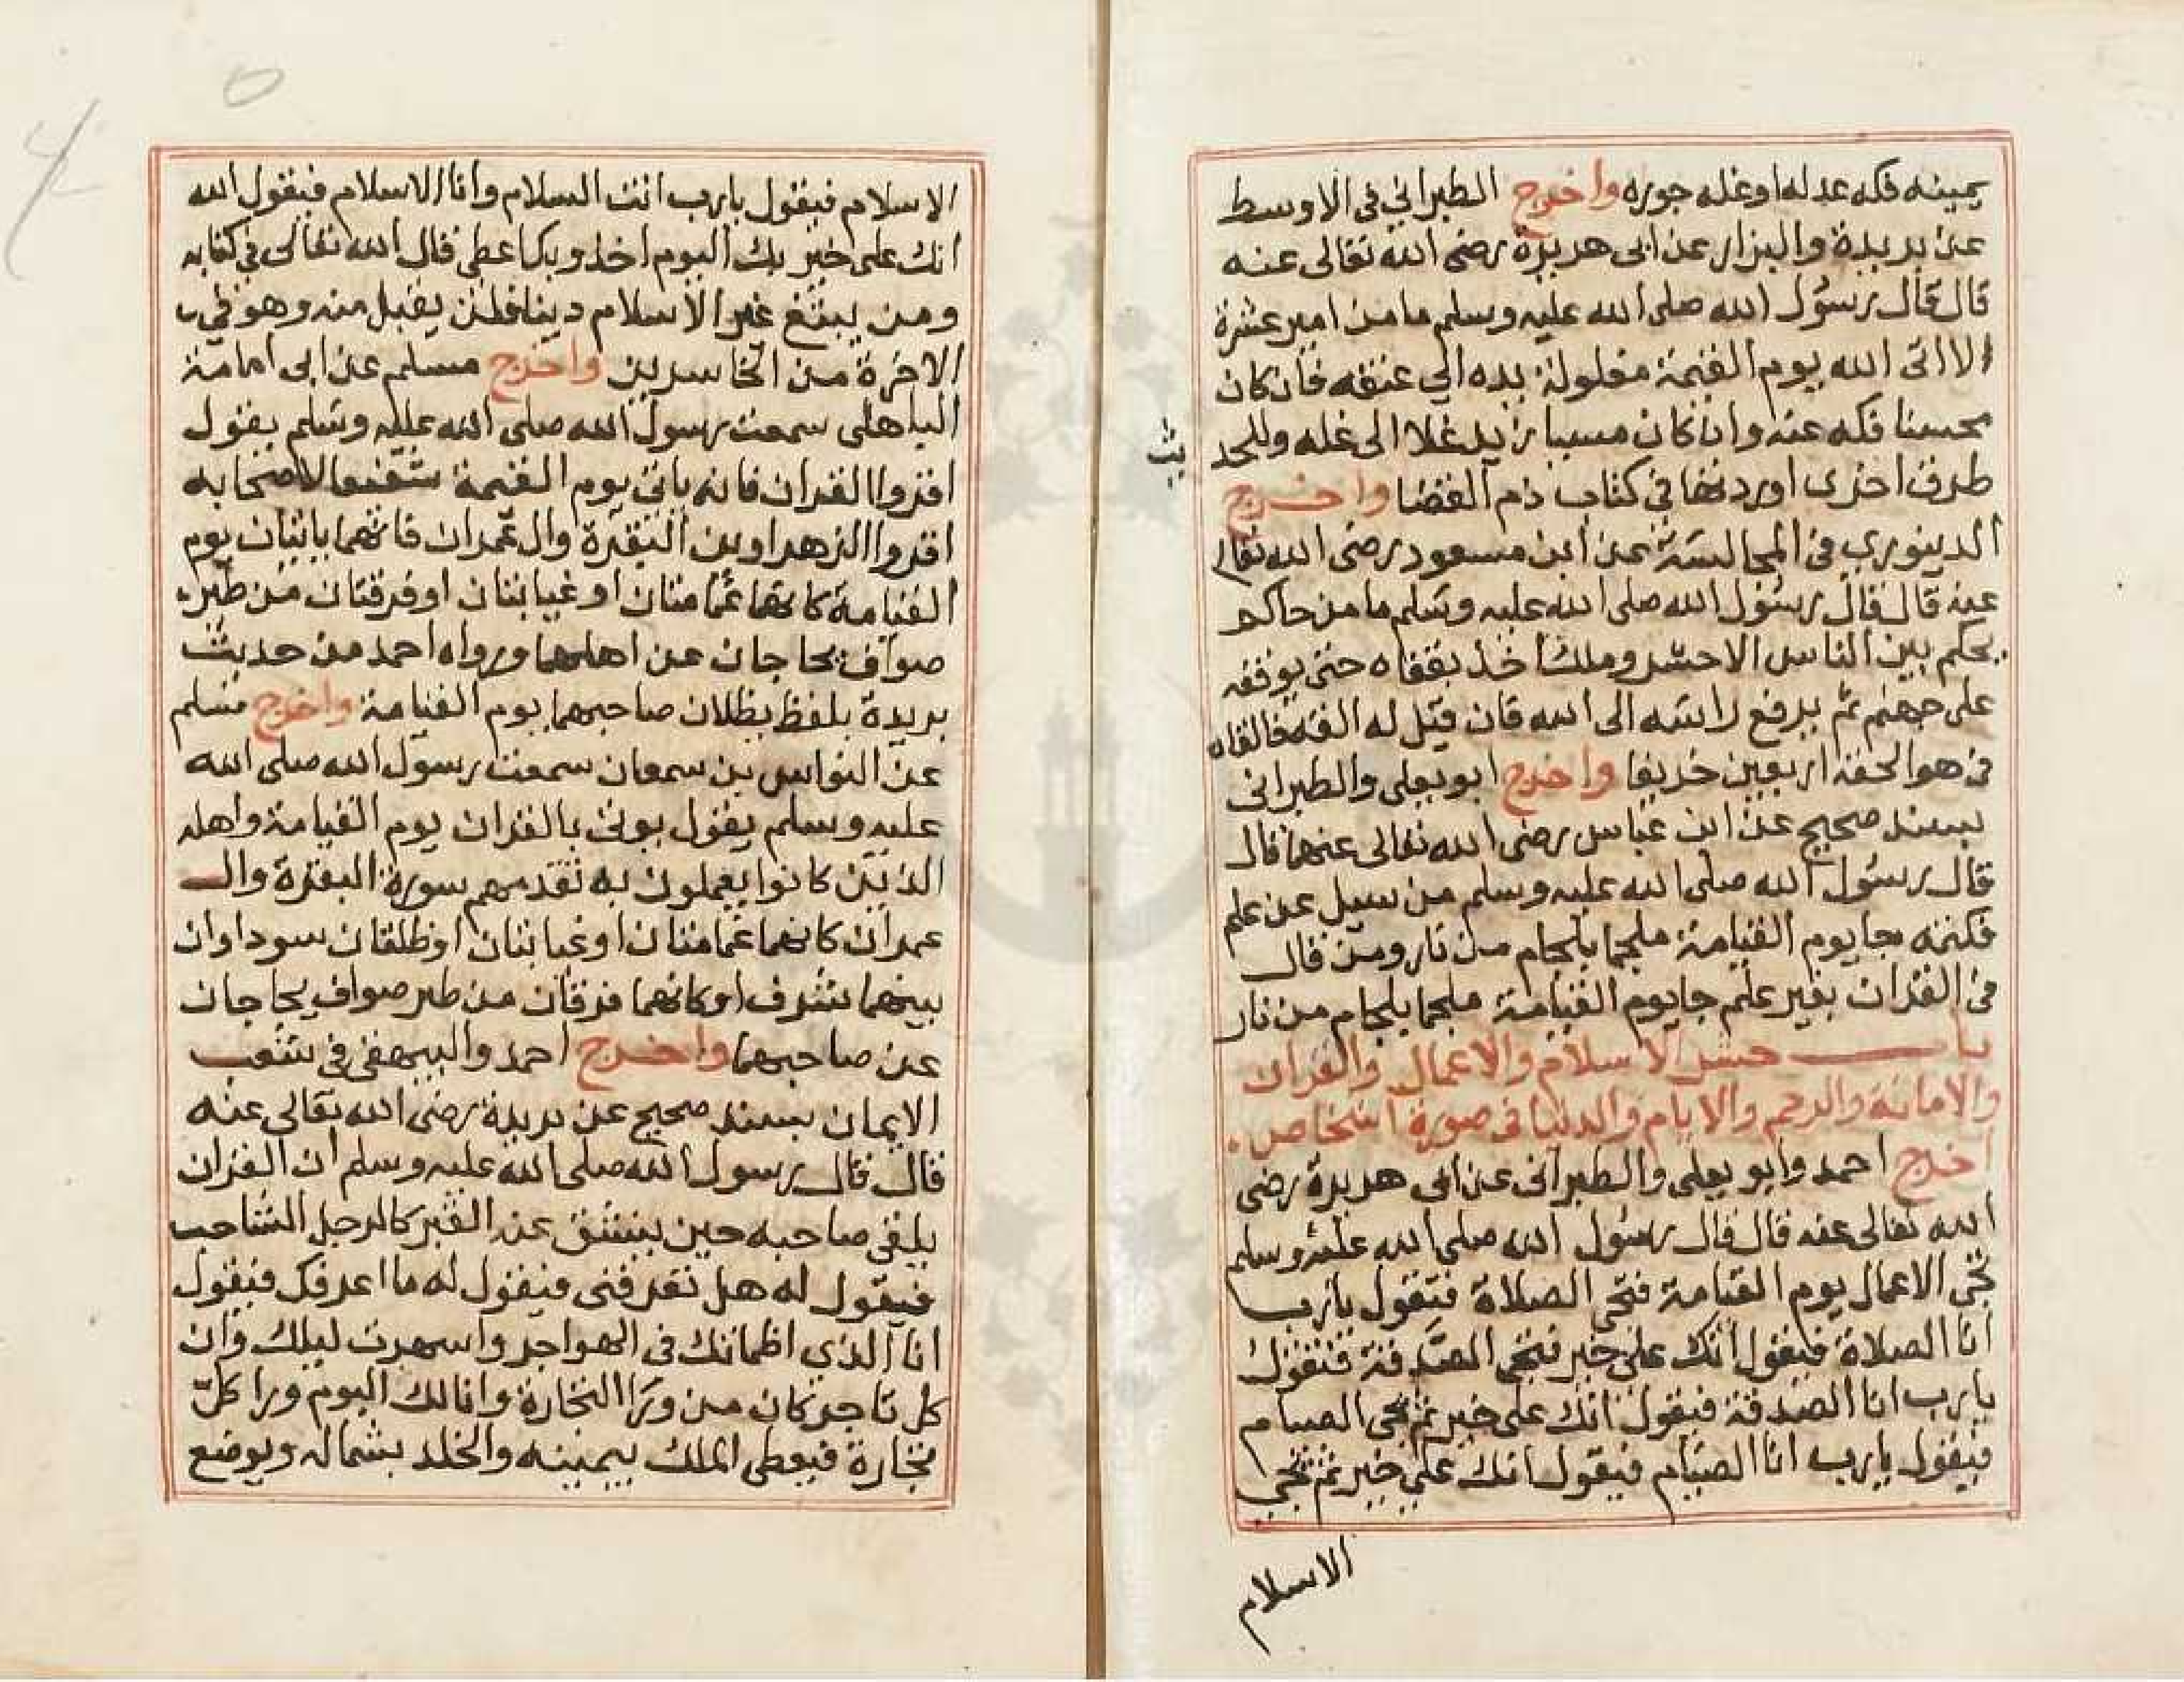 يمينه فكه عدله او غله جوره واخرج الطبراني في الاوسط
عن بريدة والبزار عن ابي هريرة رضي الله تعالى عنه
قال قال رسول الله صلى الله عليه وسلم ما من امير عشرة
الا اتى الله يوم القيمة مغلولة يده الي عنقه فان كان
محسنا فكه عنه وان كان مسيا زيد غلا الى غله وللحد
يث
طرق اخرى اوردتها في كتاب ذم القضا واخرج
الدينوري في المجالسة عن ابن مسعود رضي الله تعالى
عنه قال قال رسول الله صلى الله عليه وسلم ما من حاكم
يحكم بين الناس الا حشر وملك اخذ بقفاه حتى يوقفه
على جهنم ثم يرفع راسه الى الله فان قيل له القه فالقاه
في هوا لحقه اربعين خريفا واخرج ابو يعلى والطبراني
بسند صحيح عن ابن عباس رضي الله تعالى عنهما قال
قال رسول الله صلى الله عليه وسلم من سيل عن علم
فكتمه جا يوم القيامة ملجما بلجام من نار ومن قال
في القران بغير علم جا يوم القيامة ملجما بلجام من نار
باب حشر الاسلام والاعمال والقران
والامانة والرحم والايام والدنيا في صورة اشخاص
اخرج احمد وابو يعلى والطبراني عن ابى هريرة رضي
الله تعالى عنه قال قال رسول الله صلى الله عليه وسلم
تجى الاعمال يوم القيامة فتجى الصلاة فتقول يارب
انا الصلاة فيقول انك على خير فتجى الصدقة فتقول
يارب انا الصدقة فيقول انك على خير ثم تجى الصيام
فيقول يارب انا الصيام فيقول انك علي خير ثم تجي
الاسلام
الاسلام فيقول يارب انت السلام وانا الاسلام فيقول الله
انك على خير بك اليوم اخذ وبك اعطي قال الله تعالى في كتابه
ومن يبتغ غير الاسلام دينا فلن يقبل منه وهو في
الاخرة من الخاسرين واخرج مسلم عن ابى امامة
الباهلى سمعت رسول الله صلى الله عليه وسلم يقول
اقروا القران فانه ياتي يوم القيمة شفيعا لاصحابه
اقروا الزهراوين البقرة وال عمران فانهما ياتيان يوم
القيامة كانهما غمامتان او غيايتان او فرقتان من طير
صواف يحاجان عن اهلهما ورواه احمد من حديث
بريدة بلفظ يظلان صاحبهما يوم القيامة واخرج مسلم
عن النواس بن سمعان سمعت رسول الله صلى الله
عليه وسلم يقول يوتى بالقران يوم القيامة واهله
الذين كانوا يعملون به تقدمهم سورة البقرة وال
عمران كانهما غمامتان او غيايتان او ظلتان سوداوان
بينهما شرف او كانهما فرقان من طير صواف يحاجان
عن صاحبهما واخرج احمد والبيهقي في شعب
الايمان بسند صحيح عن بريدة رضي الله تعالى عنه
قال قال رسول الله صلى الله عليه وسلم ان القران
يلقى صاحبه حين ينشق عنه القبر كالرجل الشاحب
فيقول له هل تعرفنى فيقول له ما اعرفك فيقول
انا الذي اظماتك في الهواجر واسهرت ليلك وان
كل تاجر كان من ورا التجارة وانا لك اليوم ورا كل
تجارة فيعطى الملك بيمينه والخلد بشماله ويوضع